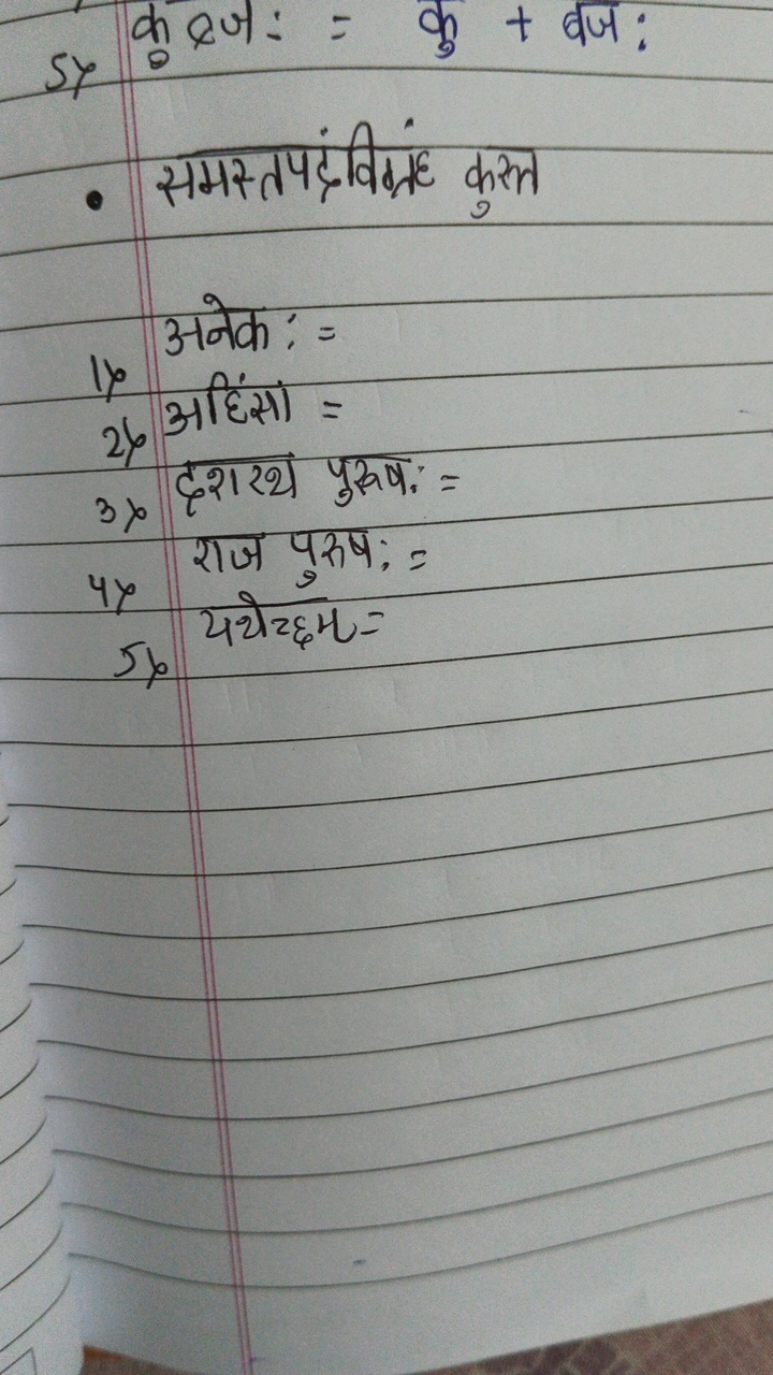 5) कु ध्वज : = कु + ध्वज :
• समस्तपदंविग्रंह कुरुत
1) अनेक : =
2) अहिंसां =
3) दशरथ पुरूष : =
4) राज पुरुष : =
5) यथेच्छम =